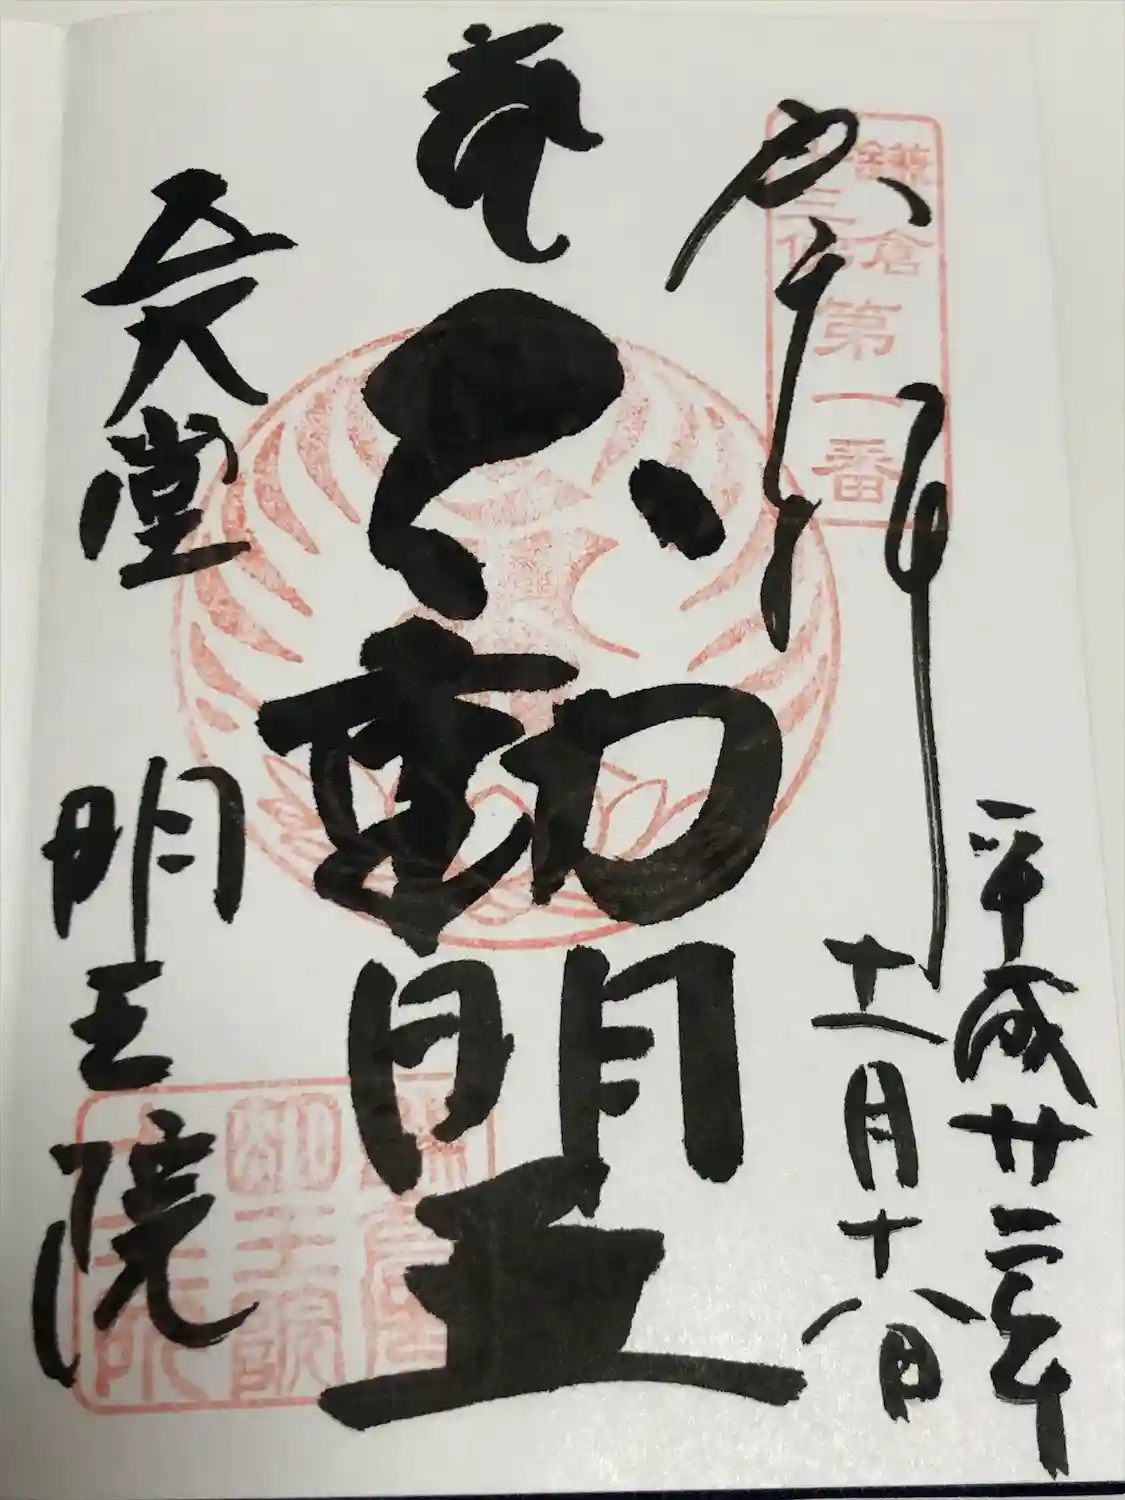 鎌倉
十三佛
第一番
奉拝
平成廿二年
十一月十八日
不動明王
五大堂
明王院